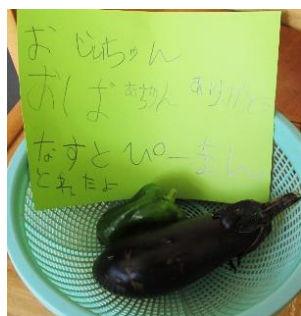 おじいちゃん
おばあちゃん ありがとう
なすとぴーまん
とれたよ